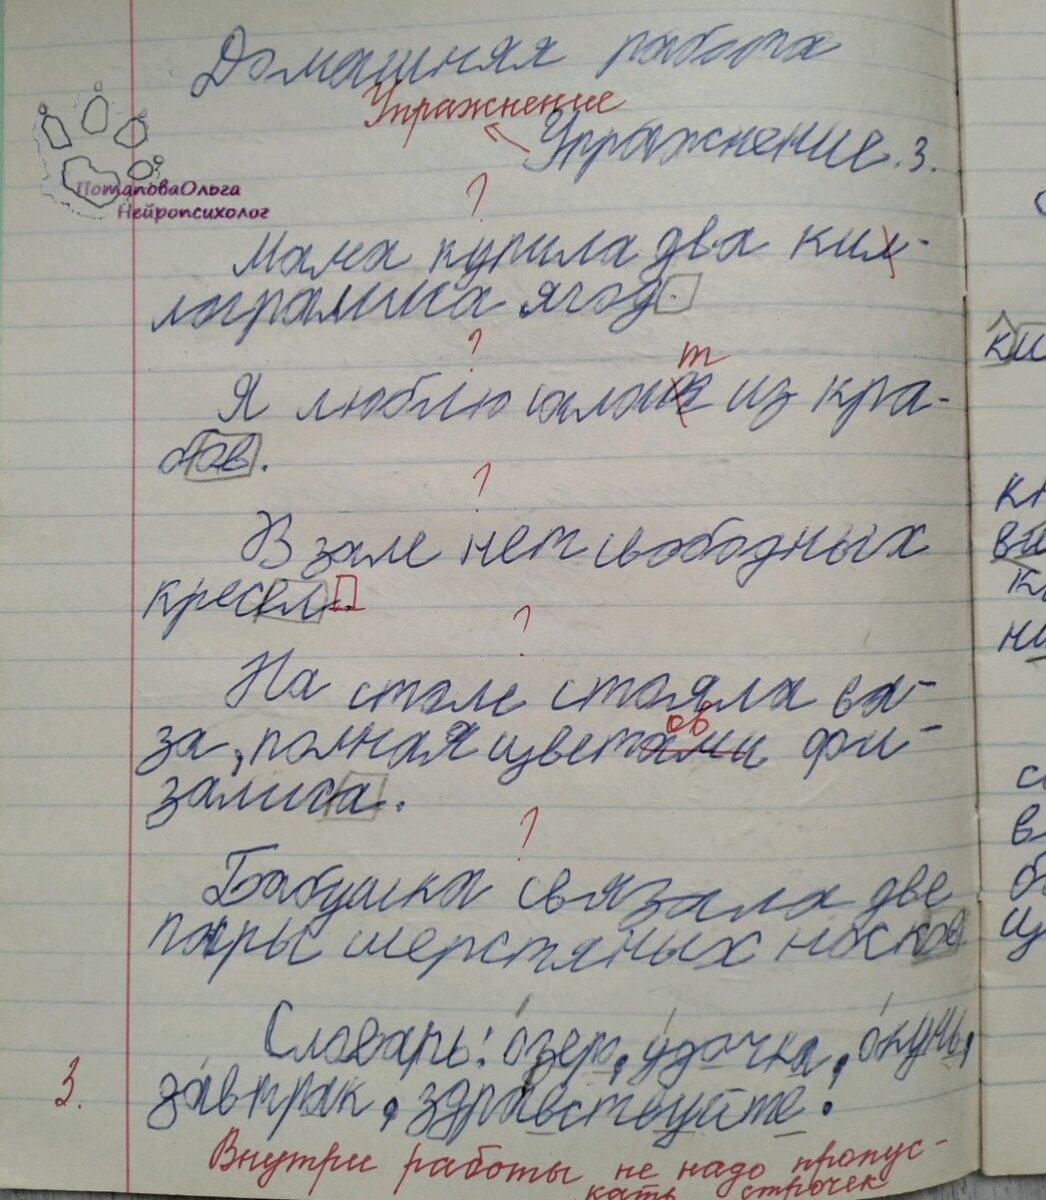 Домашняя работа
Упражнение
Упражнение.3.
ПотаповаОльга
Нейропсихолог
?
Мама купила два кил-
лограмма ягод.
?
т
Я люблю салат из кра-
бов.
?
В зале нет свободных
кресел.
?
На столе стояла ва-
ов
за, полная цветами фи-
залиса.
?
Бабушка связала две
пары шерстяных носков
Словарь: озеро, удочка, окунь,
завтрак, здравствуйте.
3.
Внутри работы не надо пропус-
кать строчек
ки
кл
ви
к
ни
с
в
б
ц